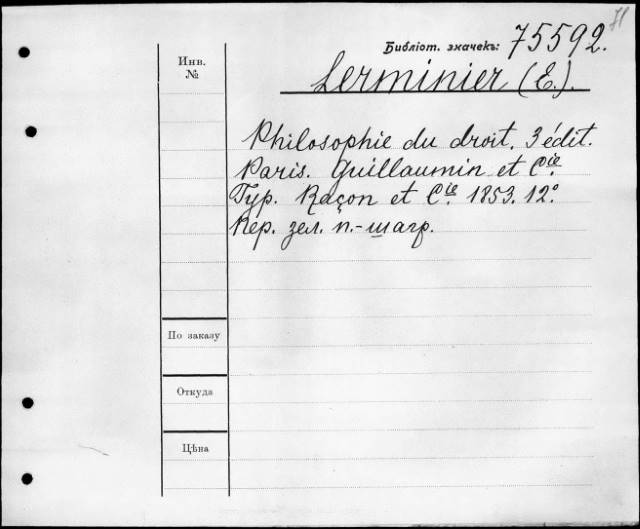 71
Библіот. значекъ: 75592.
Инв. №
Lerminier (E.).
Philosophie du droit. 3 édit.
Paris. Guillaumin et Cie.
Typ. Raçon et Cie. 1853. 12°
Пер. зел. п.-шагр.
По заказу
Откуда
Цѣна